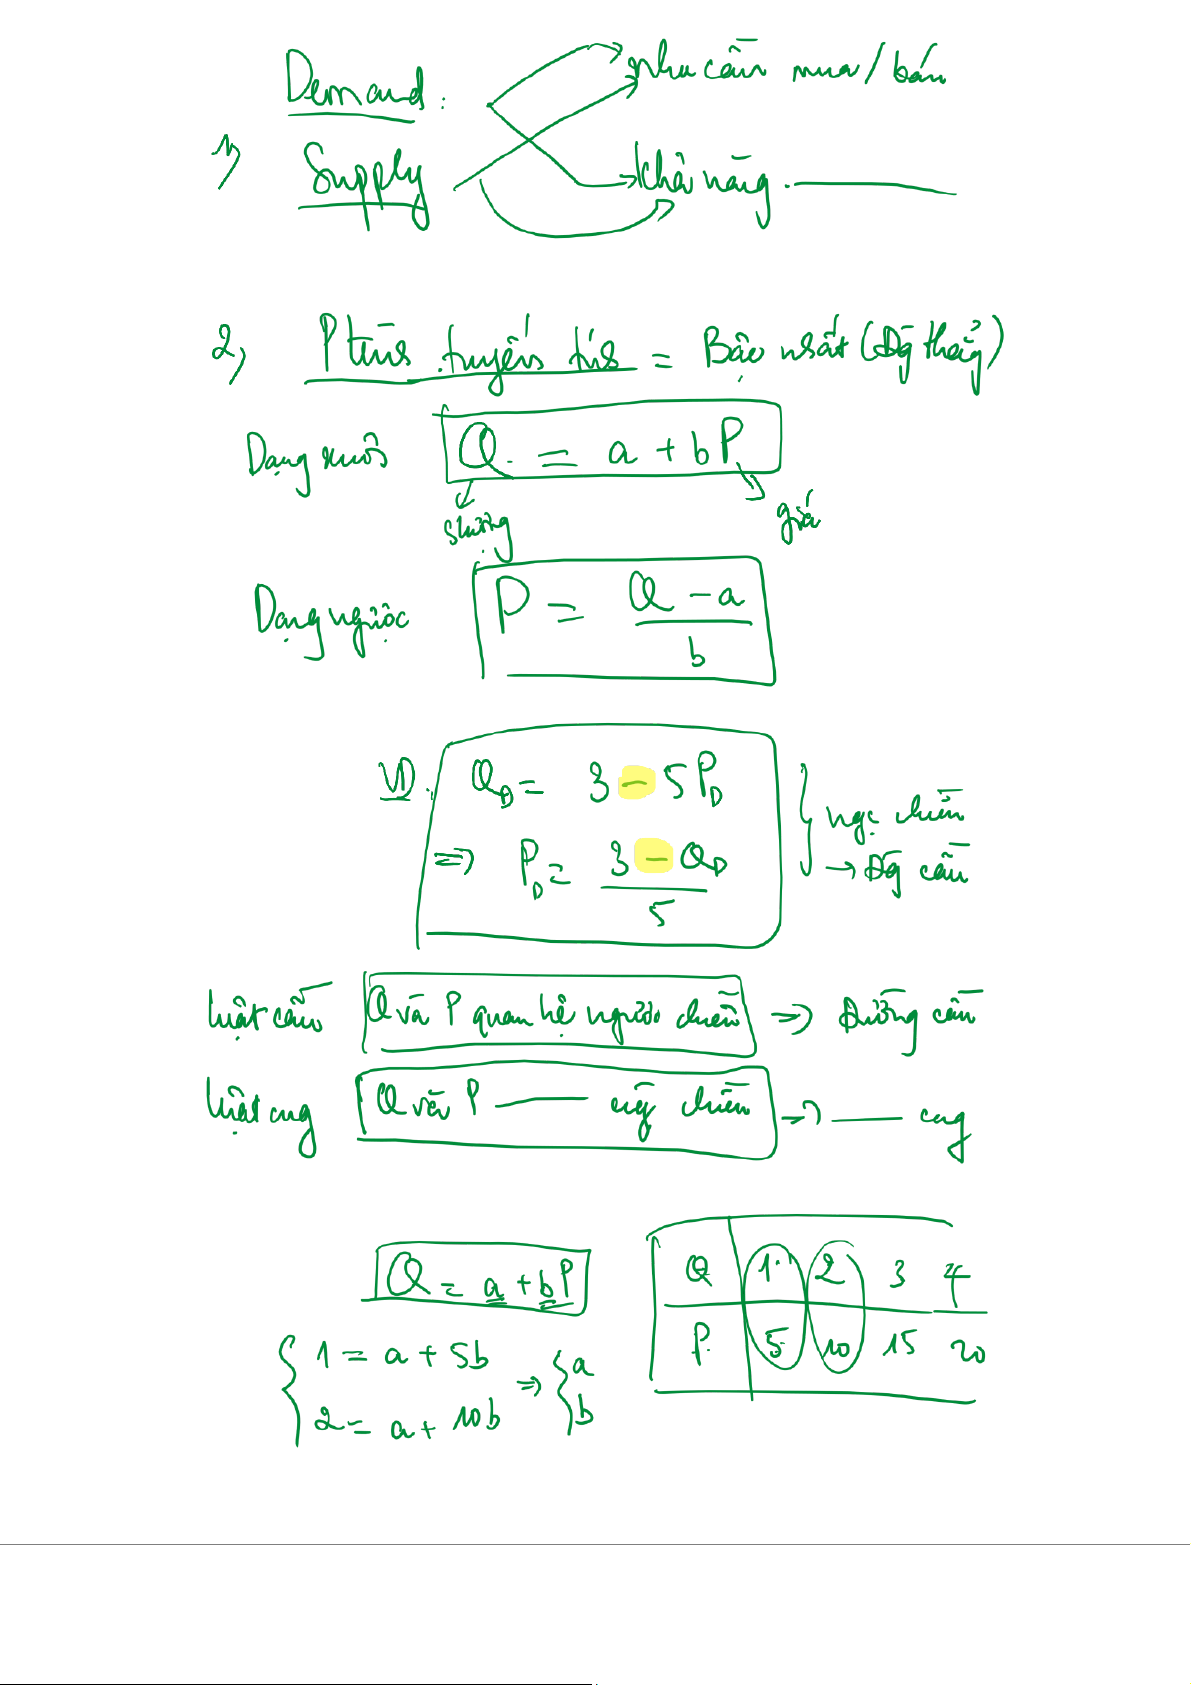 Demand: nhu cầu mua/bán
1)
Supply khả năng. ———
2) P tính tuyến tính = Bậc nhất (Đg thẳng)
Dạng xuôi Q = a + bP
slượng giá
Dạng ngược P = (Q - a)/b
VD: Q_D = 3 - 5P_D
ngc chiều
=> P_D = (3 - Q_D)/5
→ Đg cầu
luật cầu Q và P quan hệ ngược chiều => Đường cầu
luật cug Q và P ——— cùg chiều => ——— cug
Q = a + bP
Q 1 2 3 4
P 5 10 15 20
1 = a + 5b
2 = a + 10b
=> { a
b